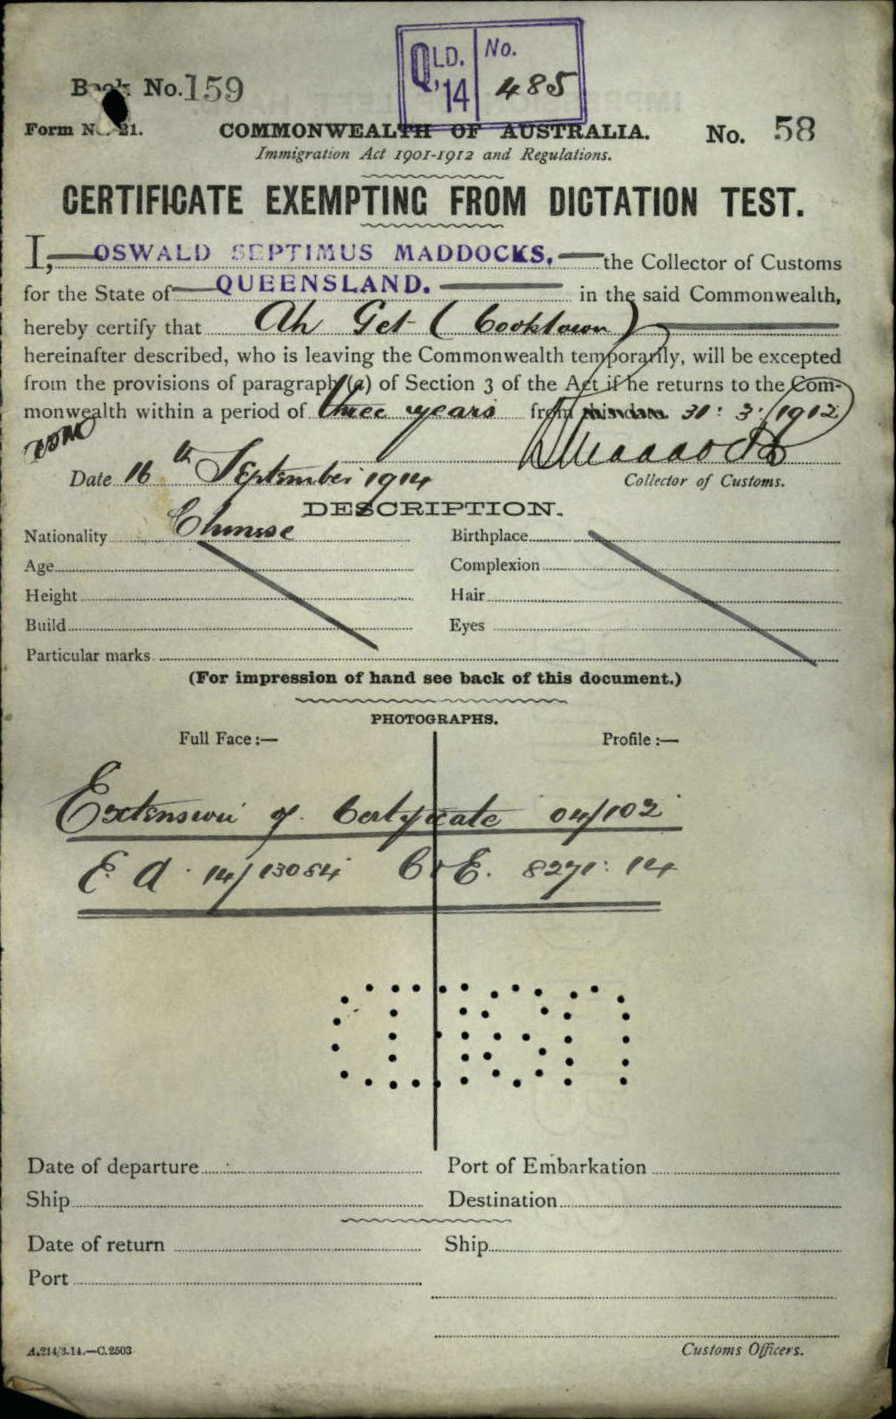 QLD. '14 No. 485
Book No. 159
Form No. 21. COMMONWEALTH OF AUSTRALIA. No. 58
Immigration Act 1901-1912 and Regulations.
CERTIFICATE EXEMPTING FROM DICTATION TEST.
I, OSWALD SEPTIMUS MADDOCKS, the Collector of Customs
for the State of QUEENSLAND. in the said Commonwealth,
hereby certify that Ah Get (Cooktown)
hereinafter described, who is leaving the Commonwealth temporarily, will be excepted
from the provisions of paragraph (a) of Section 3 of the Act if he returns to the Com-
monwealth within a period of three years from this date. 31: 3: 1912
OSMaddocks
Date 16th September 1914 Collector of Customs.
DESCRIPTION.
Nationality Chinese Birthplace
Age Complexion
Height Hair
Build Eyes
Particular marks
(For impression of hand see back of this document.)
PHOTOGRAPHS.
Full Face :— Profile :—
Extension of Certificate 04/102
E A. 14/13084 C & E. 8271: 14
Date of departure Port of Embarkation
Ship Destination
Date of return Ship
Port
A.214/3.14.—C.2503 Customs Officers.